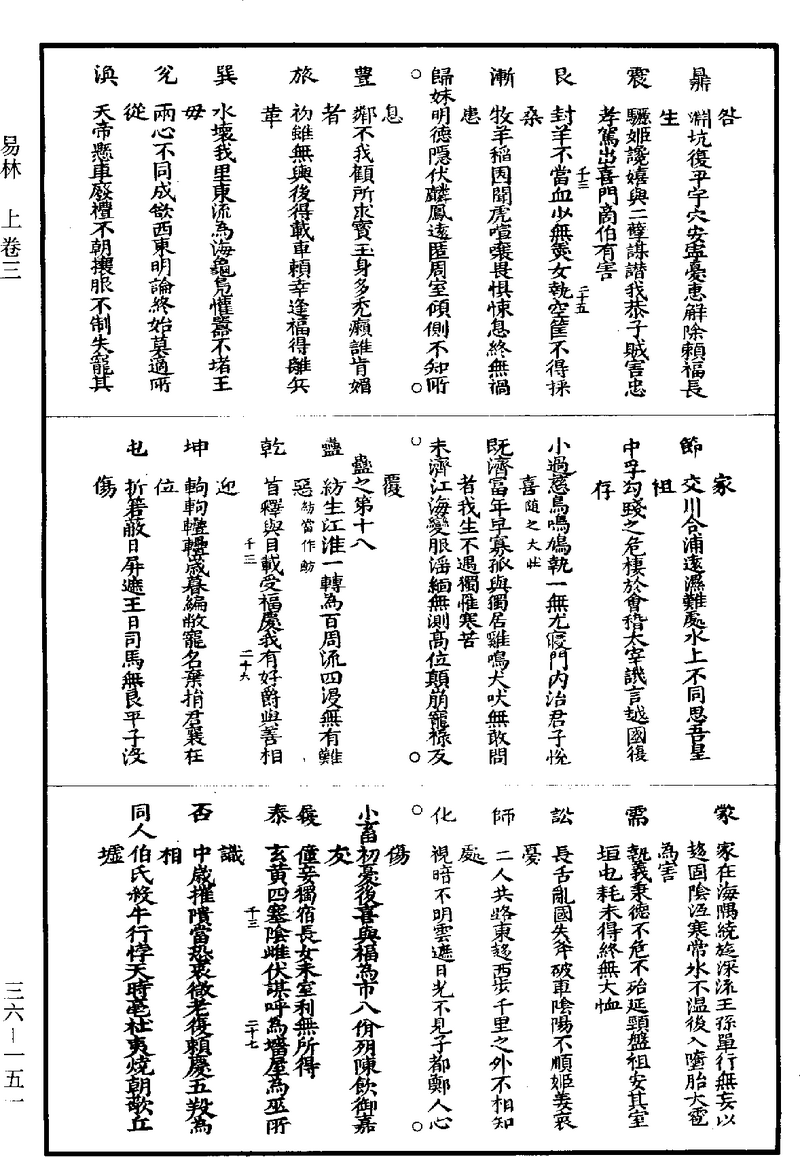 易林 上卷三
三六—一五一
咎
鼎 淵坑復平宇穴安寧憂患解除賴福長
生
震 驪姬讒嬉與二孽謀譖我恭子賊害忠
孝駕出喜門商伯有害
艮 封羊不當血少無羹女執空筐不得採
千三 二十五
桑
漸 牧羊稻田聞虎喧嚷畏懼悚息終無禍
患
歸妹明德隱伏麟鳳遠匿周室傾側不知所
息
豐 鄰不我顧所求寶玉身多禿癩誰肯媚
者
旅 初雖無輿後得載車賴幸逢福得離兵
革
巽 水壞我里東流為海龜鳧懽嚚不堵王
毋
兌 兩心不同成欲西東明論終始莫適所
從
渙 天帝懸車廢禮不朝攘服不制失寵其
家
節 交川合浦遠濕難處水上不同思吾皇
祖
中孚勾踐之危棲於會稽太宰譏言越國復
存
小過慈鳥鳴鳩執一無尤寢門內治君子悅
喜 隨之大壯
既濟富年早寡孤與獨居雞鳴犬吠無敢問
者我生不遇獨罹寒苦
未濟江海變服滛緬無測高位顛崩寵祿反
覆
蠱之第十八
蠱 紡生江淮一轉為百周流四浸無有難
惡 紡當作魴
乾 首釋與目載受福慶我有好爵與善相
千三 二十六
迎
坤 輷輷轞轞歲暮編敝寵名棄捐君衰在
位
屯 折箬蔽日屏遮王目司馬無良平子沒
傷
蒙 家在海隅統旋深流王孫單行無妄以
趍固陰沍寒常氷不温後入墮胎大雹
為害
需 執義秉德不危不殆延頸盤祖安其室
垣屯耗未得終無大恤
訟 長舌亂國失斧破車陰陽不順姬姜哀
憂
師 二人共路東趍西步千里之外不相知
處
化 視暗不明雲遮日光不見子都鄭人心
傷
小畜初憂後喜與福為市八佾列陳飲御嘉
友
履 僮妾獨宿長女未室利無所得
泰 玄黄四塞陰雌伏謀呼為墻屋為巫所
千三 二十七
識
否 中歲摧隤當恐衰微老復賴慶五羖為
相
同人伯氏殺牛行悖天時亳社夷燒朝歌丘
墟